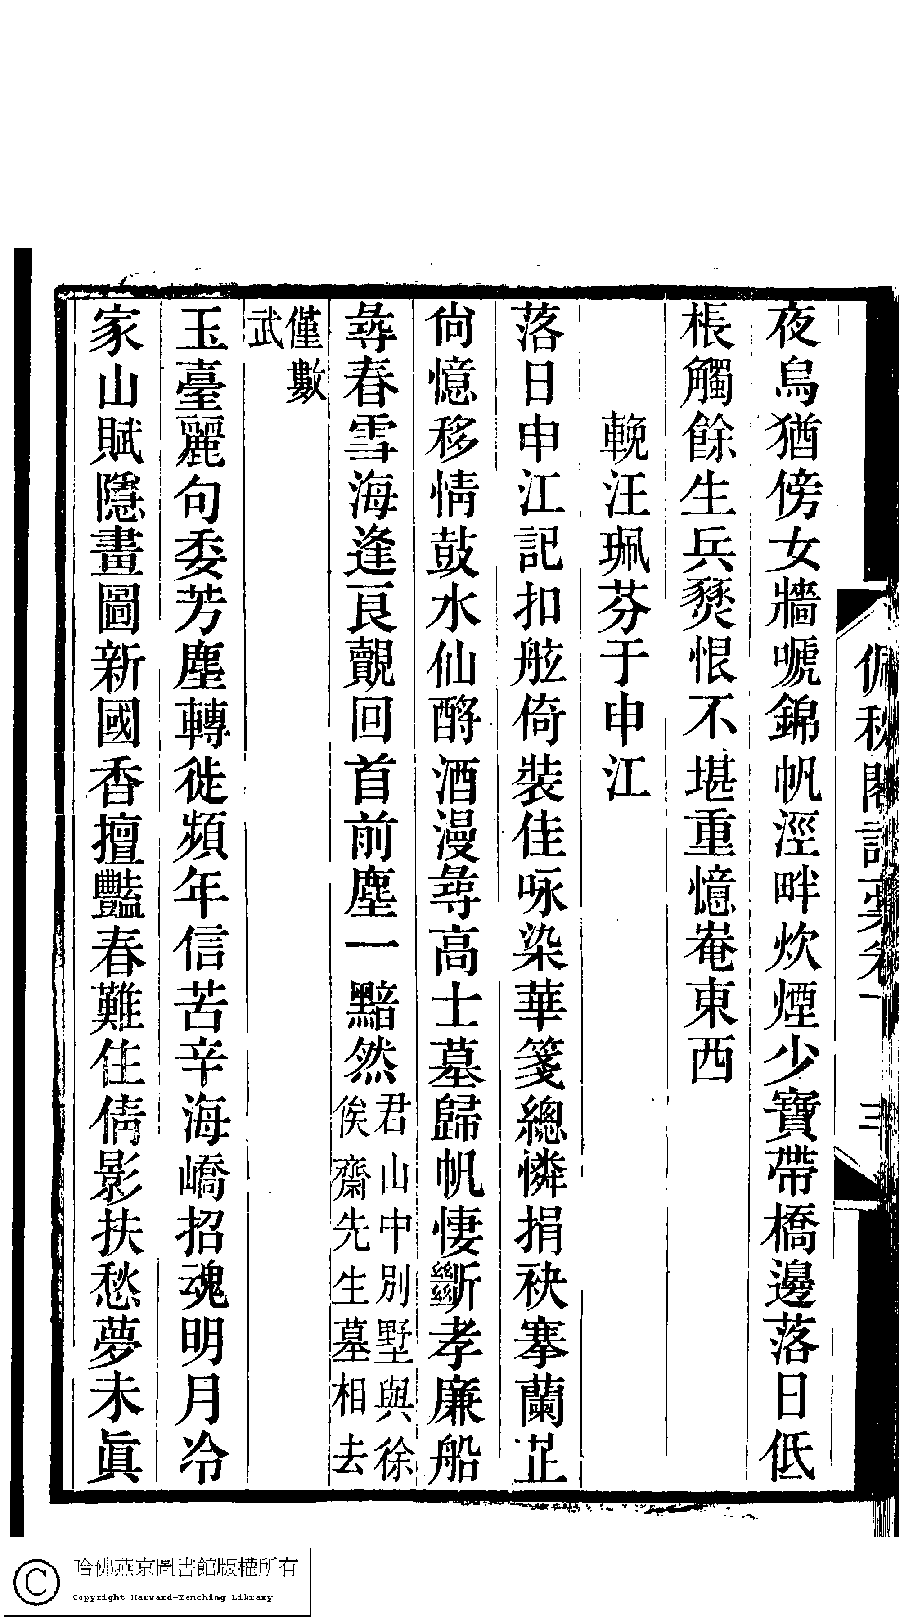 佩秋閣詩稾卷下 三
夜烏猶傍女牆嗁錦帆涇畔炊煙少寶帶橋邊落日低
棖觸餘生兵燹恨不堪重憶菴東西
輓汪珮芬于申江
落日申江記扣舷倚裝佳咏染華箋總憐捐袂搴蘭芷
尙憶移情鼓水仙酹酒漫尋高士墓歸帆悽斷孝廉船
尋春雪海逢良覿回首前塵一黯然君山中別墅與徐
俟齋先生墓相去
僅數
武
玉臺麗句委芳塵轉徙頻年信苦辛海嶠招魂明月冷
家山賦隱畫圖新國香擅豔春難住倩影扶愁夢未眞
哈佛燕京圖書館版權所有
Copyright Harvard-Yenching Library